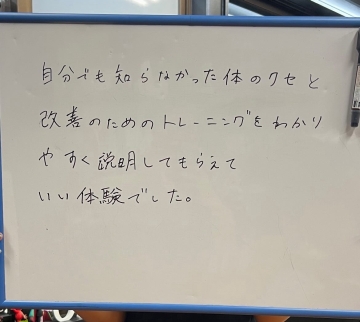 自分でも知らなかった体のクセと
改善のためのトレーニングをわかり
やすく説明してもらえて
いい体験でした。